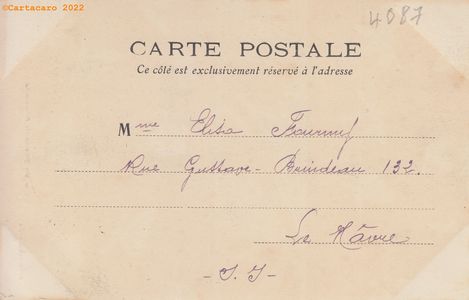 ©Cartacaro 2022
4087
CARTE POSTALE
Ce côté est exclusivement réservé à l'adresse
Mme Elisa
Rue Gustave-Brindeau 132.
Le Hâvre